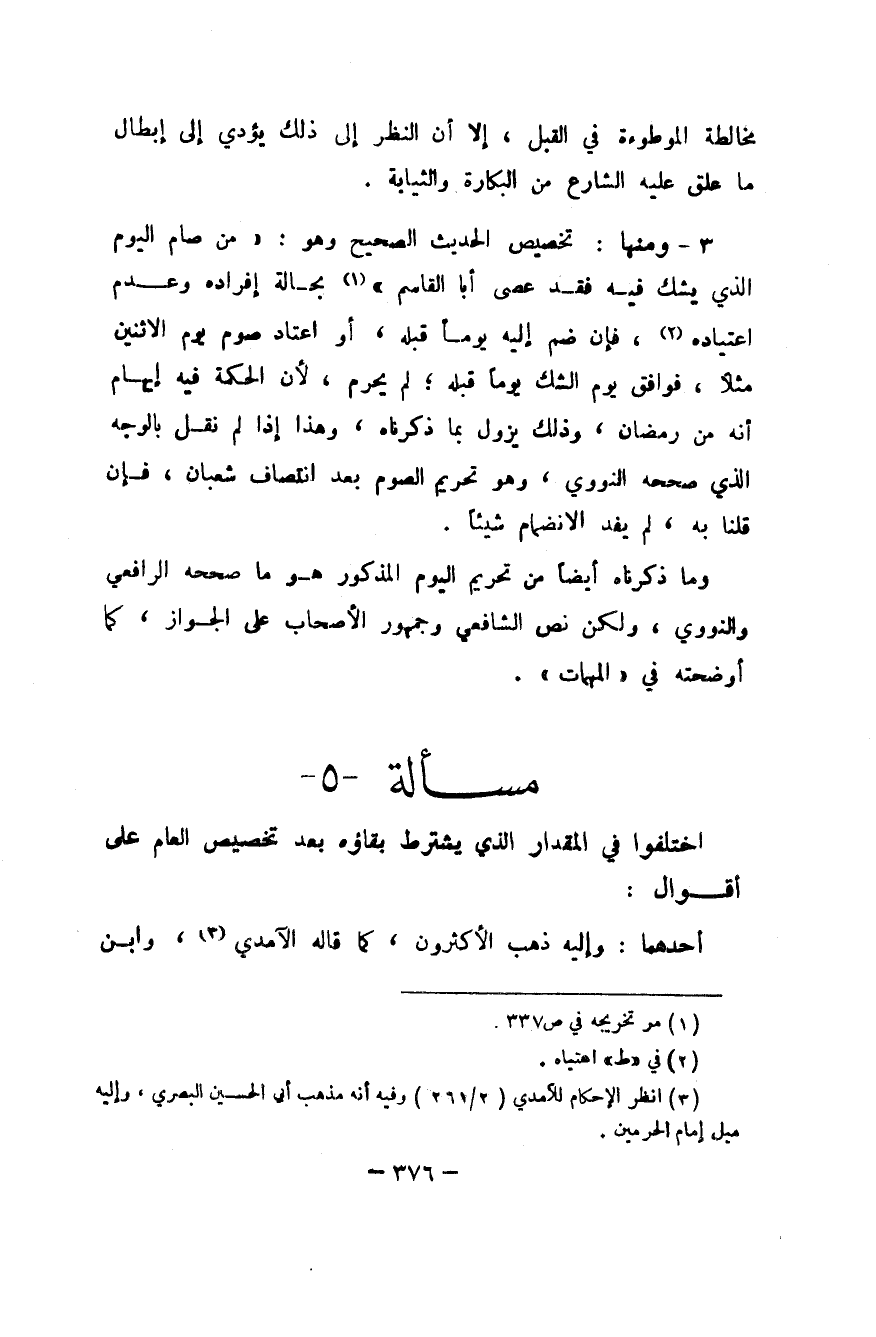 مخالطة الموطوءة في القبل ، إلا أن النظر إلى ذلك يؤدي إلى إبطال
ما علق عليه الشارع من البكارة والثيابة .
٣ - ومنها : تخصيص الحديث الصحيح وهو : « من صام اليوم
الذي يشك فيه فقد عصى أبا القاسم » (١) بحالة إفراده وعدم
اعتياده (٢) ، فإن ضم إليه يوماً قبله ، أو اعتاد صوم يوم الاثنين
مثلاً ، فوافق يوم الشك يوماً قبله ؛ لم يحرم ، لأن الحكمة فيه إيهام
أنه من رمضان ، وذلك يزول بما ذكرناه ، وهذا إذا لم نقل بالوجه
الذي صححه النووي ، وهو تحريم الصوم بعد انتصاف شعبان ، فإن
قلنا به ، لم يفد الانضمام شيئاً .
وما ذكرناه أيضاً من تحريم اليوم المذكور هو ما صححه الرافعي
والنووي ، ولكن نص الشافعي وجمهور الأصحاب على الجواز ، كما
أوضحته في « المهمات » .
مسألة -٥-
اختلفوا في المقدار الذي يشترط بقاؤه بعد تخصيص العام على
أقوال :
أحدهما : وإليه ذهب الأكثرون ، كما قاله الآمدي (٣) ، وابن
(١) مر تخريجه في ص٣٣٧ .
(٢) في «ط» اهتياه .
(٣) انظر الإحكام للآمدي ( ٢٦١/٢ ) وفيه أنه مذهب أبي الحسين البصري ، وإليه
ميل إمام الحرمين .
– ٣٧٦ –